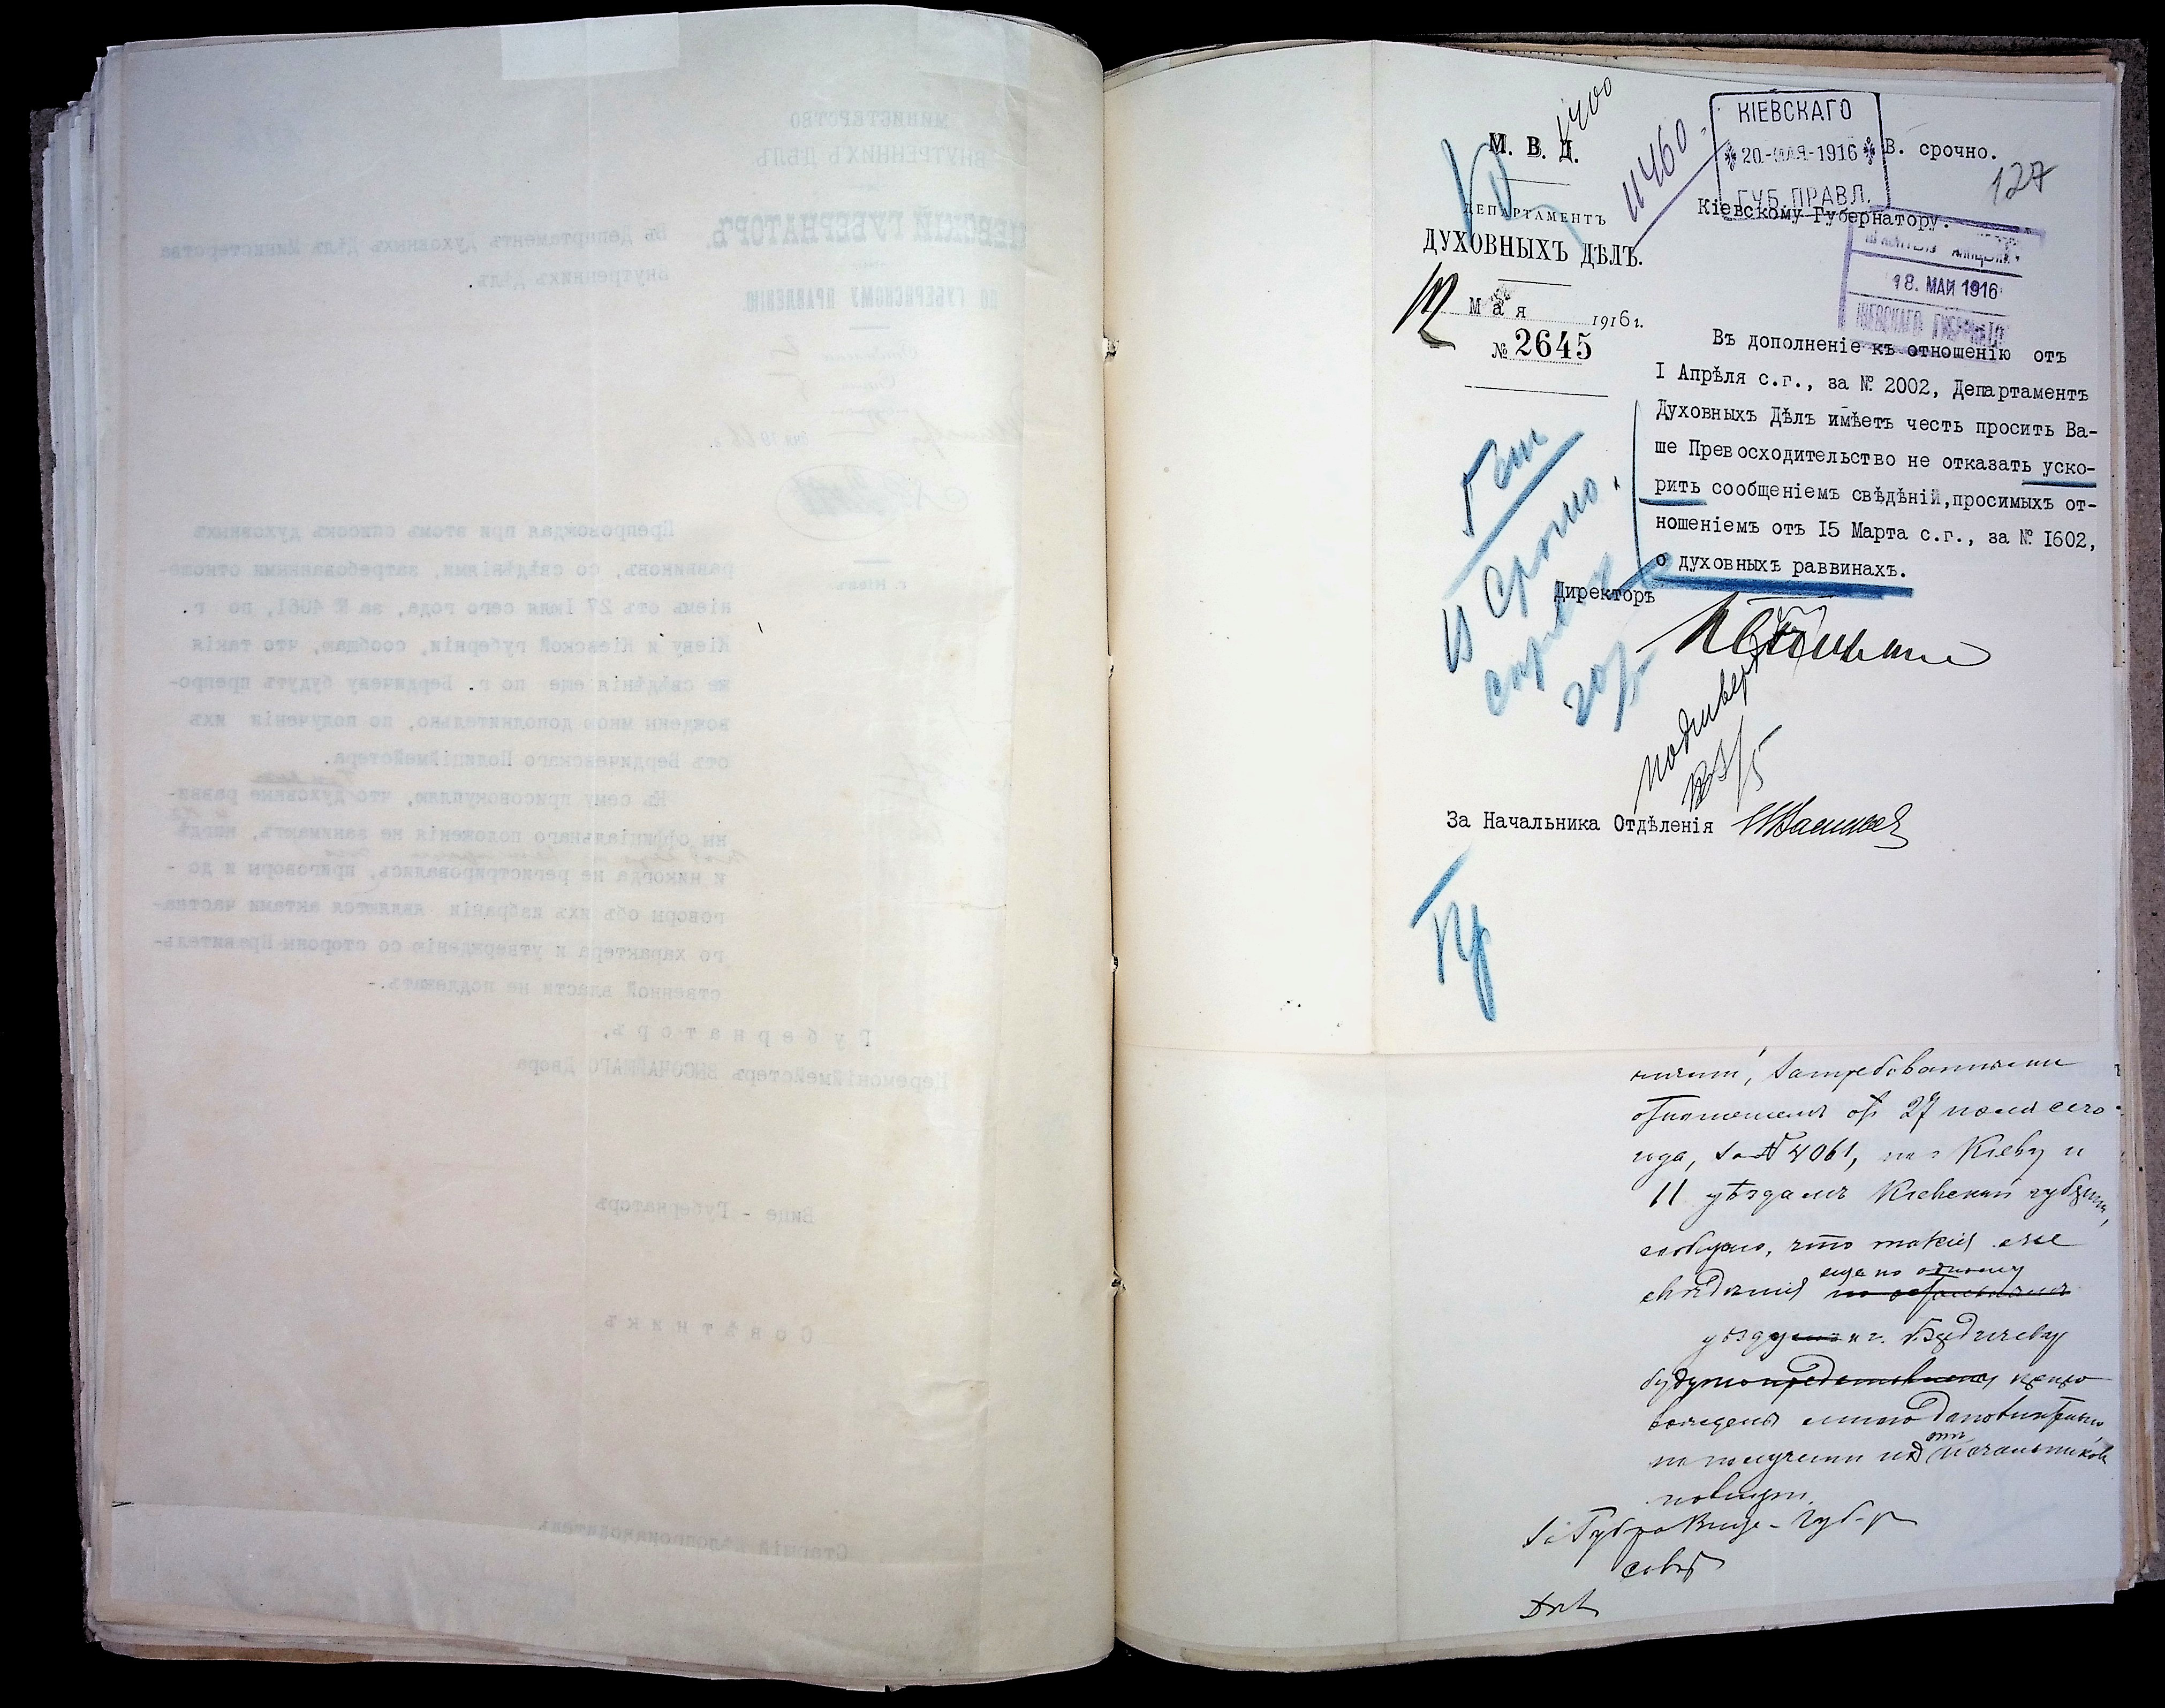 МИНИСТЕРСТВО
ВНУТРЕННИХЪ ДѢЛЪ.
КІЕВСКІЙ ГУБЕРНАТОРЪ.
ПО ГУБЕРНСКОМУ ПРАВЛЕНІЮ
г. Кіевъ
Въ Департаментъ Духовныхъ Дѣлъ Министерства
Внутреннихъ Дѣлъ.
Препровождая при этомъ списокъ духовныхъ
раввиновъ, со свѣдѣніями, затребованными отноше-
ніемъ отъ 27 Іюля сего года, за № 4061, по г.
Кіеву и Кіевской губерніи, сообщаю, что такія
же свѣдѣнія еще по г. Бердичеву будутъ препро-
вождены мною дополнительно, по полученіи ихъ
отъ Бердичевскаго Полиціймейстера.
Къ сему присовокупляю, что духовные равви-
ны оффиціальнаго положенія не занимаютъ, нигдѣ
и никогда не регистрировались, приговоры и до-
говоры объ ихъ избраніи являются актами частна-
го характера и утвержденію со стороны Правитель-
ственной власти не подлежатъ.-
Губернаторъ,
Церемоніймейстеръ ВЫСОЧАЙШАГО Двора
Вице - Губернаторъ
Совѣтникъ
Старшій Дѣлопроизводитель
М. В. Д.
ДЕПАРТАМЕНТЪ
ДУХОВНЫХЪ ДѢЛЪ.
Мая 1916 г.
№ 2645
11460
КІЕВСКАГО
20-МАЯ-1916
ГУБ. ПРАВЛ.
В. срочно.
127
Кіевскому Губернатору.
18. МАЙ 1916
Въ дополненіе къ отношенію отъ
I Апрѣля с.г., за № 2002, Департаментъ
Духовныхъ Дѣлъ имѣетъ честь просить Ва-
ше Превосходительство не отказать уско-
рить сообщеніемъ свѣдѣній, просимыхъ от-
ношеніемъ отъ 15 Марта с.г., за № 1602,
о духовныхъ раввинахъ.
Срочно.
Директоръ
За Начальника Отдѣленія
затребованными
отношеніемъ отъ 27 іюля сего
года, за № 4061, по г. Кіеву и
11 уѣздамъ Кіевской губерніи,
сообщаю, что такія же
свѣдѣнія еще по одному
уѣзду и г. Бердичеву
будутъ препро
вождены мною дополнительно
по полученіи ихъ отъ начальниковъ
полиціи.
За Губ-ра Вице-Губ-р
Совѣт